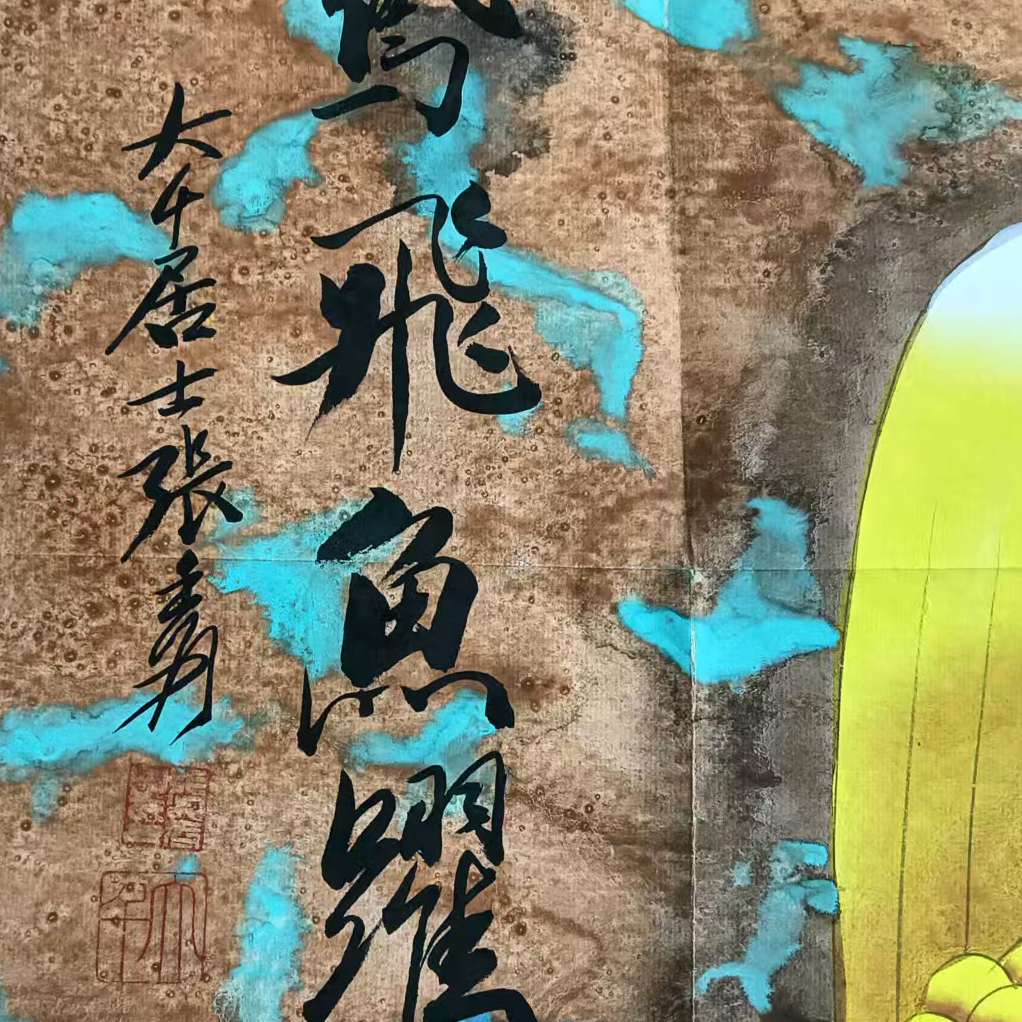 鳶飛魚躍
大千居士張爰